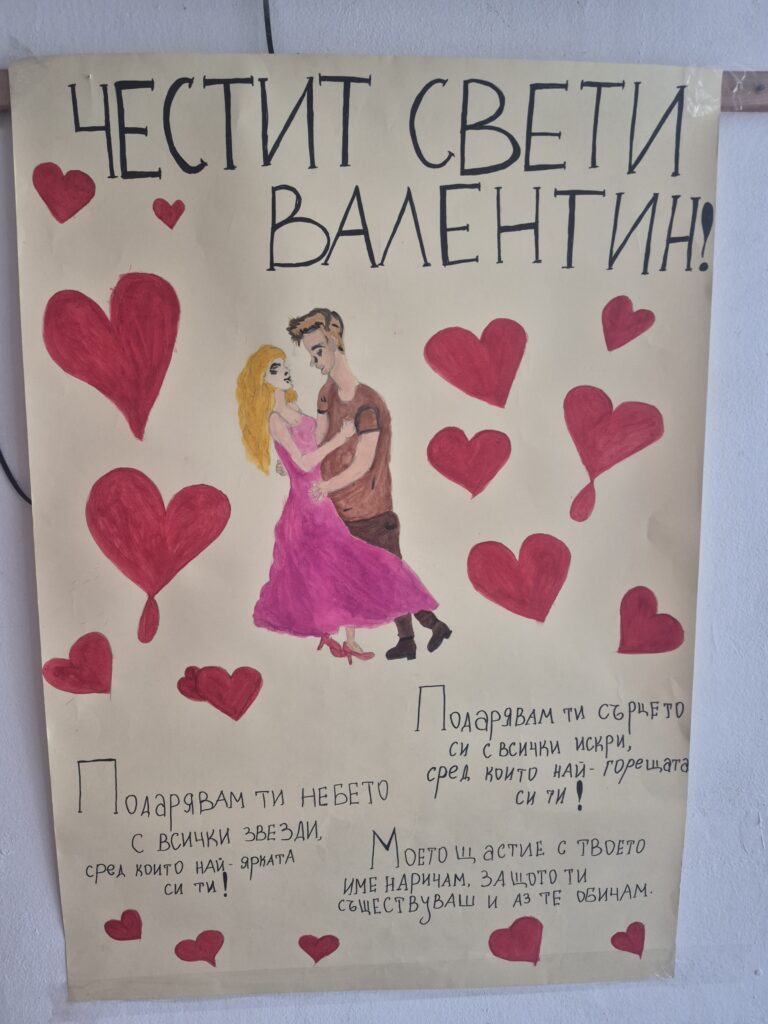 ЧЕСТИТ СВЕТИ
ВАЛЕНТИН!
Подарявам ти сърцето
си с всички искри,
сред които най-горещата
си ти!
Подарявам ти небето
с всички звезди,
сред които най-ярката
си ти!
Моето щастие с твоето
име наричам, защото ти
съществуваш и аз те обичам.